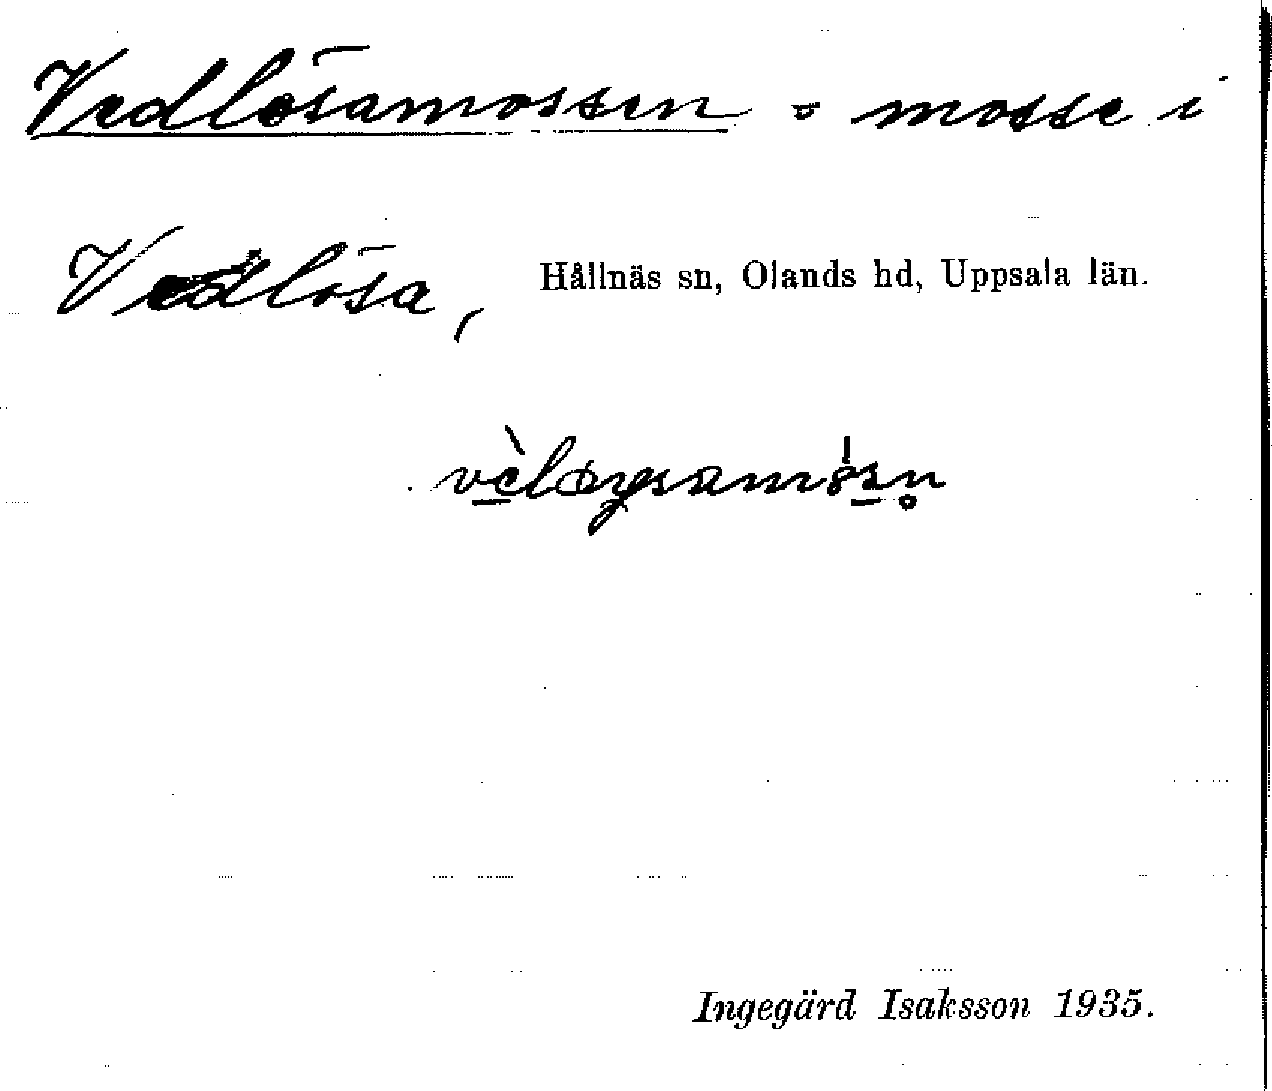 Vedlösamossen = mosse i
Vedlösa, Hållnäs sn, Olands hd, Uppsala län.
Ingegärd Isaksson 1935.